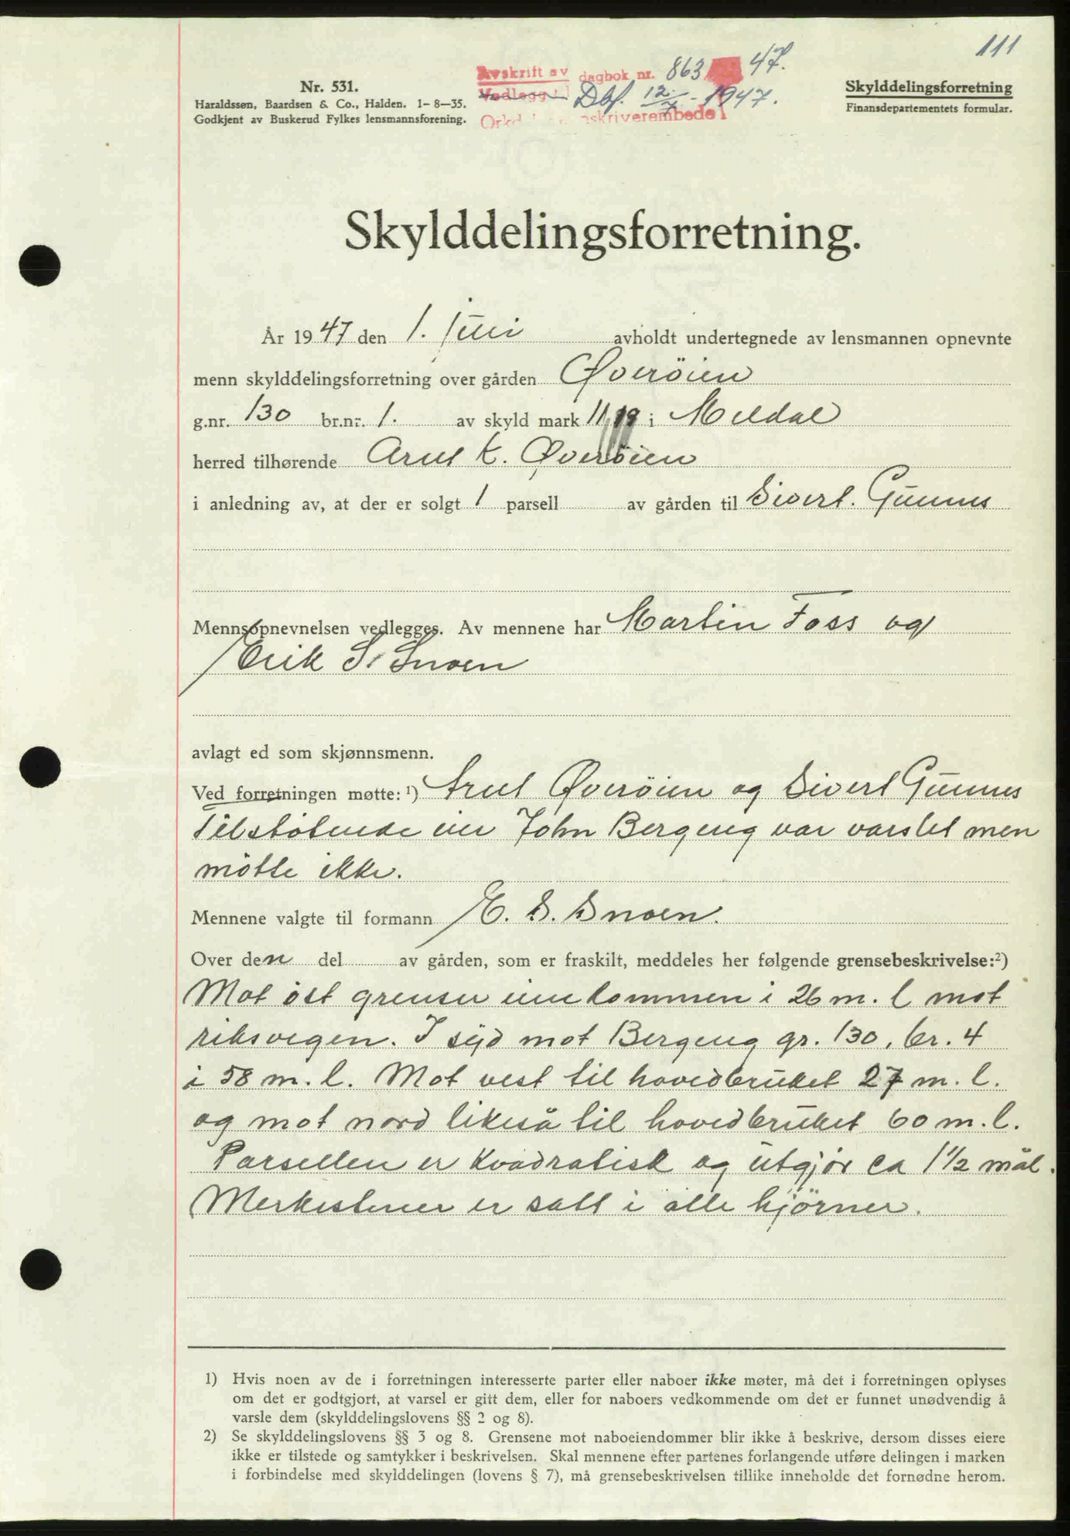 111
Avskrift av dagbok nr. 863 47.
Vedlegg Dbf. 12/7 - 1947.
skriverembede
Nr. 531.
Haraldssen, Baardsen & Co., Halden. 1-8-35.
Godkjent av Buskerud Fylkes lensmannsforening.
Skylddelingsforretning
Finansdepartementets formular.
Skylddelingsforretning.
År 1947 den 1. juli avholdt undertegnede av lensmannen opnevnte
menn skylddelingsforretning over gården Øveröien
g.nr. 130 br.nr. 1. av skyld mark 11,19 i Meldal
herred tilhørende Arnt K. Øveröien
i anledning av, at der er solgt 1 parsell av gården til Sivert. Gunnes
Mennsopnevnelsen vedlegges. Av mennene har Martin Foss og
Erik S. Snoen
avlagt ed som skjønnsmenn.
Ved forretningen møtte: ¹) Arnt Øveröien og Sivert Gunnes
Tilstötende eier John Bergeng var varslet men
mötte ikke.
Mennene valgte til formann E. S. Snoen.
Over den del av gården, som er fraskilt, meddeles her følgende grensebeskrivelse: ²)
Mot öst grenser eiendommen i 26 m. l mot
riksvegen. I syd mot Bergeng gr. 130, br. 4
i 58 m. l. Mot vest til hovedbruket 27 m. l.
og mot nord likeså til hovedbruket 60 m. l.
Parsellen er kvadratisk og utgjör ca 1½ mål.
Merkestener er satt i alle hjörner.
1) Hvis noen av de i forretningen interesserte parter eller naboer ikke møter, må det i forretningen oplyses
om det er godtgjort, at varsel er gitt dem, eller for naboers vedkommende om det er funnet unødvendig å
varsle dem (skylddelingslovens §§ 2 og 8).
2) Se skylddelingslovens §§ 3 og 8. Grensene mot naboeiendommer blir ikke å beskrive, dersom disses eiere
ikke er tilstede og samtykker i beskrivelsen. Skal mennene efter partenes forlangende utføre delingen i marken
i forbindelse med skylddelingen (lovens § 7), må grensebeskrivelsen tillike inneholde det fornødne herom.